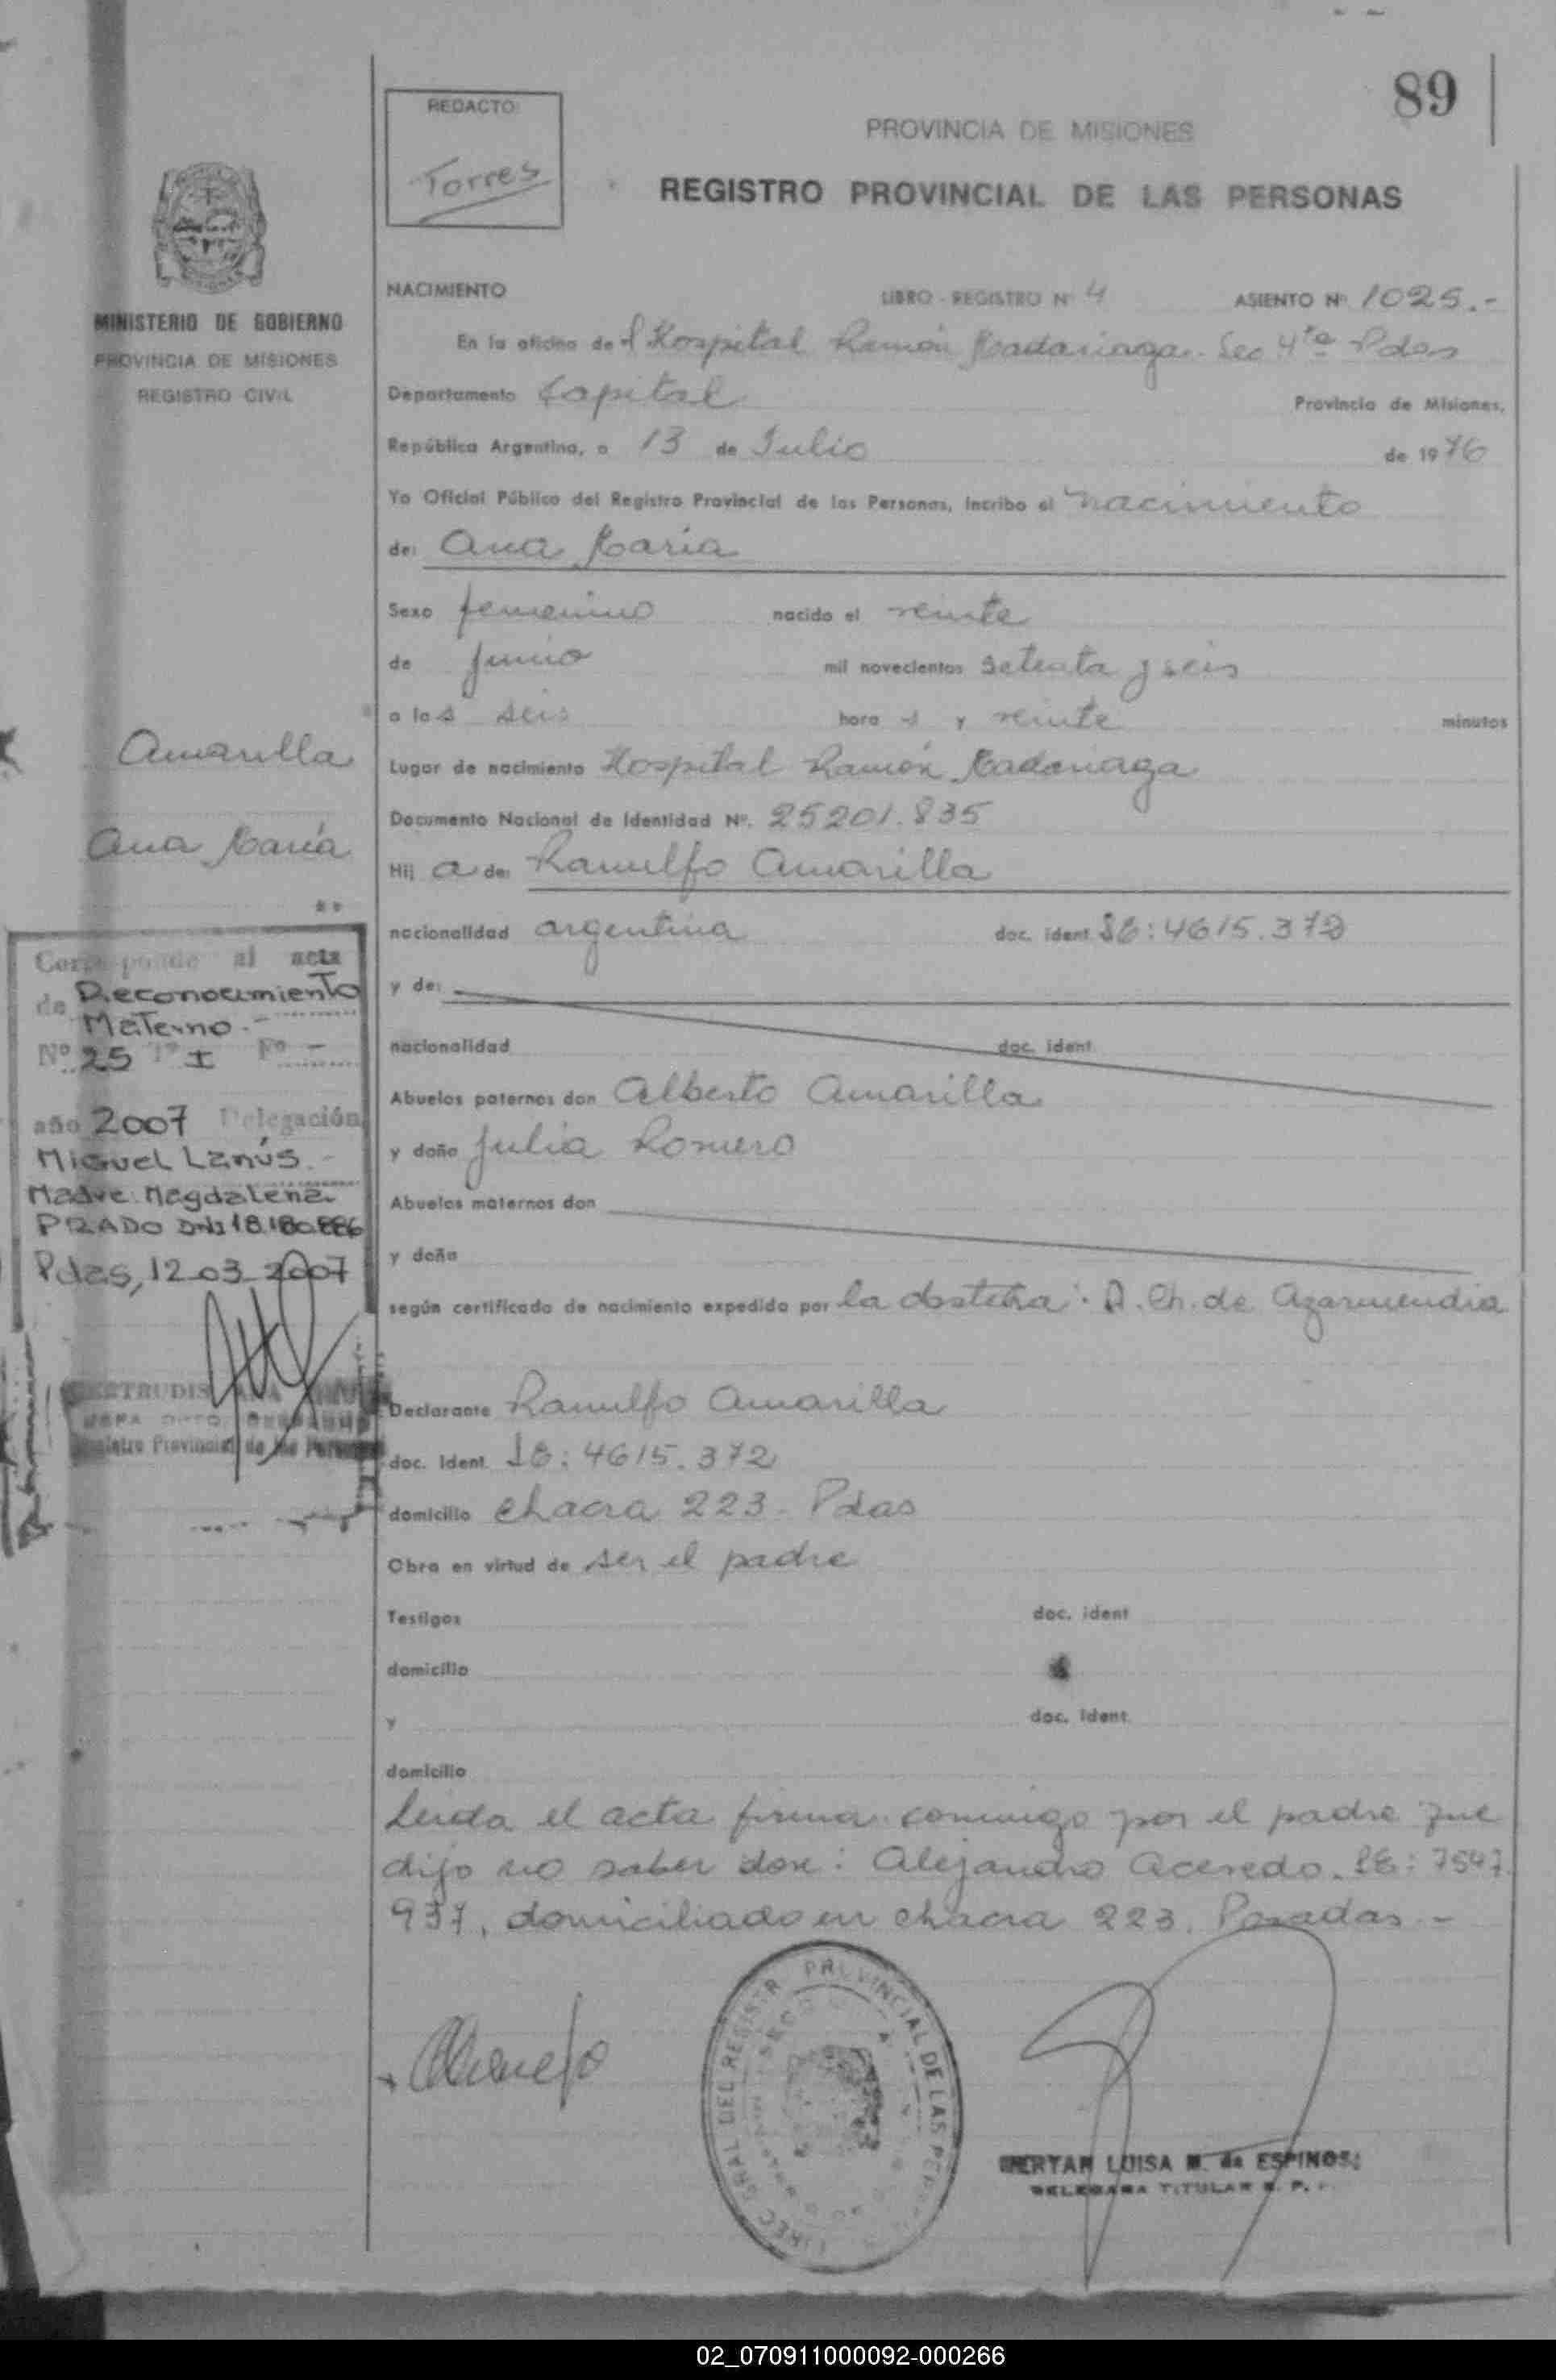 89
REDACTO
Torres
PROVINCIA DE MISIONES
REGISTRO PROVINCIAL DE LAS PERSONAS
MINISTERIO DE GOBIERNO
PROVINCIA DE MISIONES
REGISTRO CIVIL
NACIMIENTO LIBRO - REGISTRO Nº 4 ASIENTO Nº 1025.-
En la oficina del Hospital Ramón Madariaga. Sec 4ta Pdas
Departamento Capital Provincia de Misiones,
República Argentina, a 13 de Julio de 1976
Yo Oficial Público del Registro Provincial de las Personas, incribo el nacimiento
de: Ana María
Sexo femenino nacido el veinte
de junio mil novecientos setenta y seis
a las seis hora s y veinte minutos
Lugar de nacimiento Hospital Ramón Madariaga
Documento Nacional de Identidad Nº. 25201.835
Hij a de: Ramulfo Amarilla
nacionalidad argentina doc. ident. LE: 4615.372
y de:
nacionalidad doc. ident.
Abuelos paternos don Alberto Amarilla
y doña Julia Romero
Abuelos maternos don
y doña
según certificado de nacimiento expedido por la obstetra: A. Ch. de Azarmendia
Declarante Ramulfo Amarilla
doc. Ident. LE: 4615.372
domicilio chacra 223 - Pdas
Obra en virtud de ser el padre
Testigos doc. ident
domicilio
y doc. ident.
domicilio
Leida el acta firma conmigo por el padre que
dijo no saber don: Alejandro Acevedo. LE: 7547.
937, domiciliado en chacra 223. Posadas -
Amarilla
Ana María
Corresponde al acta
de Reconocimiento
Materno.-
Nº 25 Tº I Fº -
año 2007 Delegación
Miguel Lanús.-
Madre: Magdalena
PRADO DNI 18.180.886
Pdas, 12-03-2007
GERTRUDIS
Registro Provincial de las Personas
DIREC. GRAL. DEL REGISTR. PROVINCIAL DE LAS PERS
MERYAN LUISA M. de ESPINOSA
DELEGADA TITULAR R. P.
02_070911000092-000266